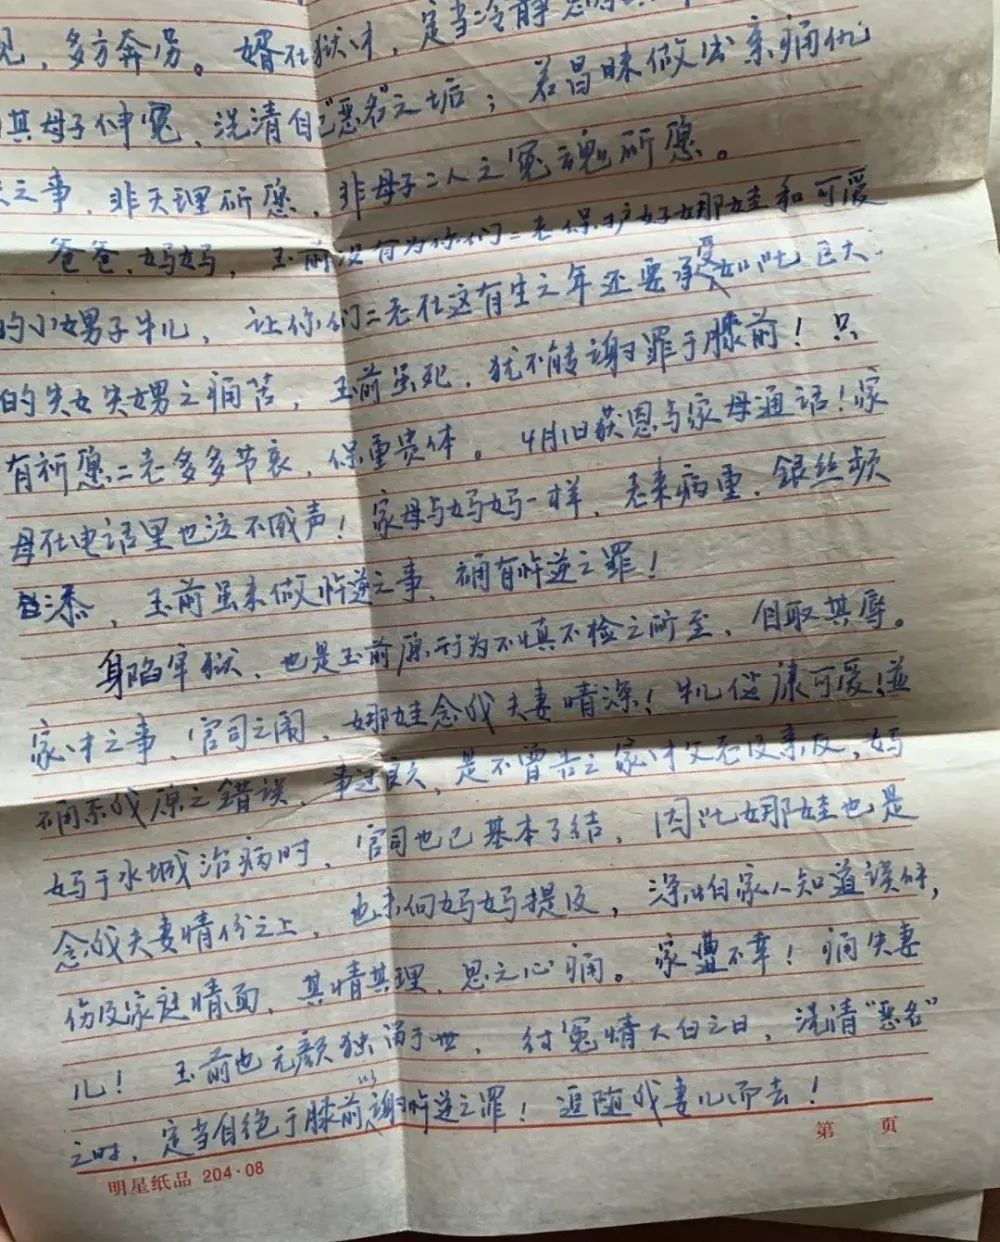 见，多方奔劳。婿在狱中，定当冷静
其母子伸冤，洗清自己"恶名"之垢；若冒昧做出亲痛仇
之事，非天理所愿，非母子二人之冤魂所愿。
爸爸、妈妈，玉前没有为你们二老保护好娜娃和可爱
的小甥子牛儿，让你们二老在这有生之年还要承受如此巨大
的失女失甥之痛苦，玉前虽死，犹不能谢罪于膝前！只
有祈愿二老多多节哀，保重贵体。4月1日获恩与家母通话！家
母在电话里也泣不成声！家母与妈妈一样，老来病重，银丝频
添，玉前虽未做忤逆之事，确有忤逆之罪！
身陷牢狱，也是玉前原行为不慎不检之所至，自取其辱。
家中之事，官司之闹，娜娃念我夫妻情深！牛儿健康可爱！并
确系我原之错误，事过良久，是不曾告之家中父老及亲友，妈
妈于水城治病时，官司也已基本了结，因此娜娃也是
念我夫妻情份之上，也未向妈妈提及，深怕家人知道误解，
伤及家庭情面，其情其理，思之心痛。家遭不幸！痛失妻
儿！玉前也无颜独活于世，待冤情大白之日，洗清"恶名"
之时，定当自绝于膝前以谢忤逆之罪！追随我妻儿而去！
第 页
明星纸品 204·08